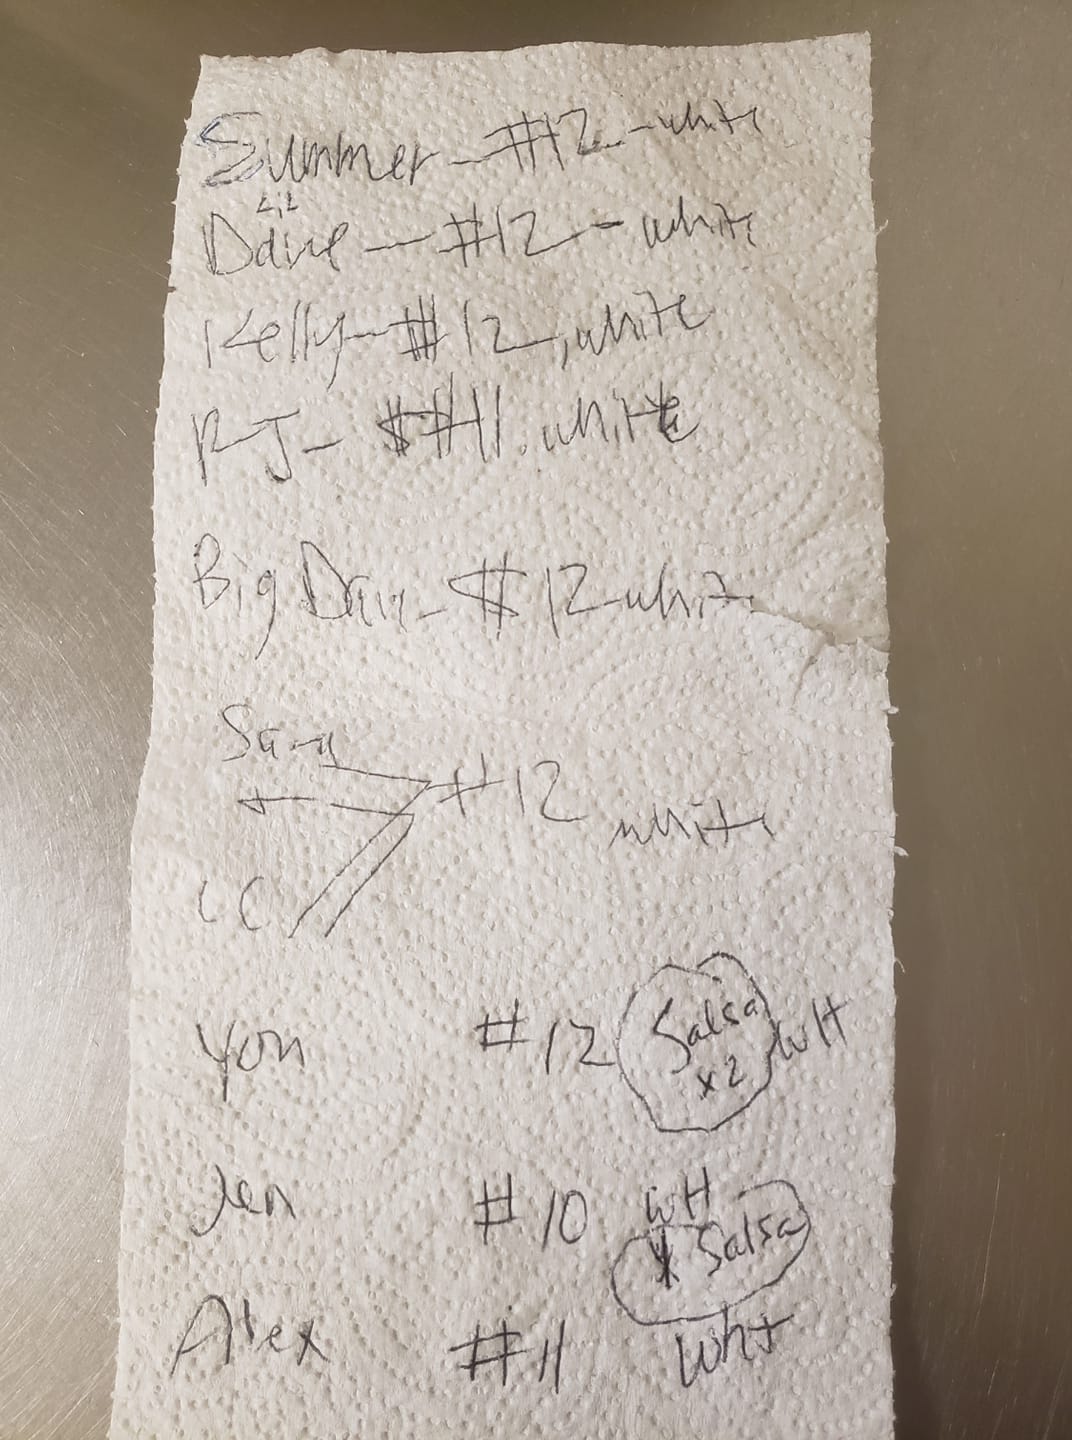 Summer - #12 - white
Lil
Dave - #12 - white
Kelly - #12 - white
RJ - #11. white
Big Dave - #12 white
#12
white
CC
Yon #12 Salsa WH
x2
Jen #10 WH
Salsa
Alex #11 Wht